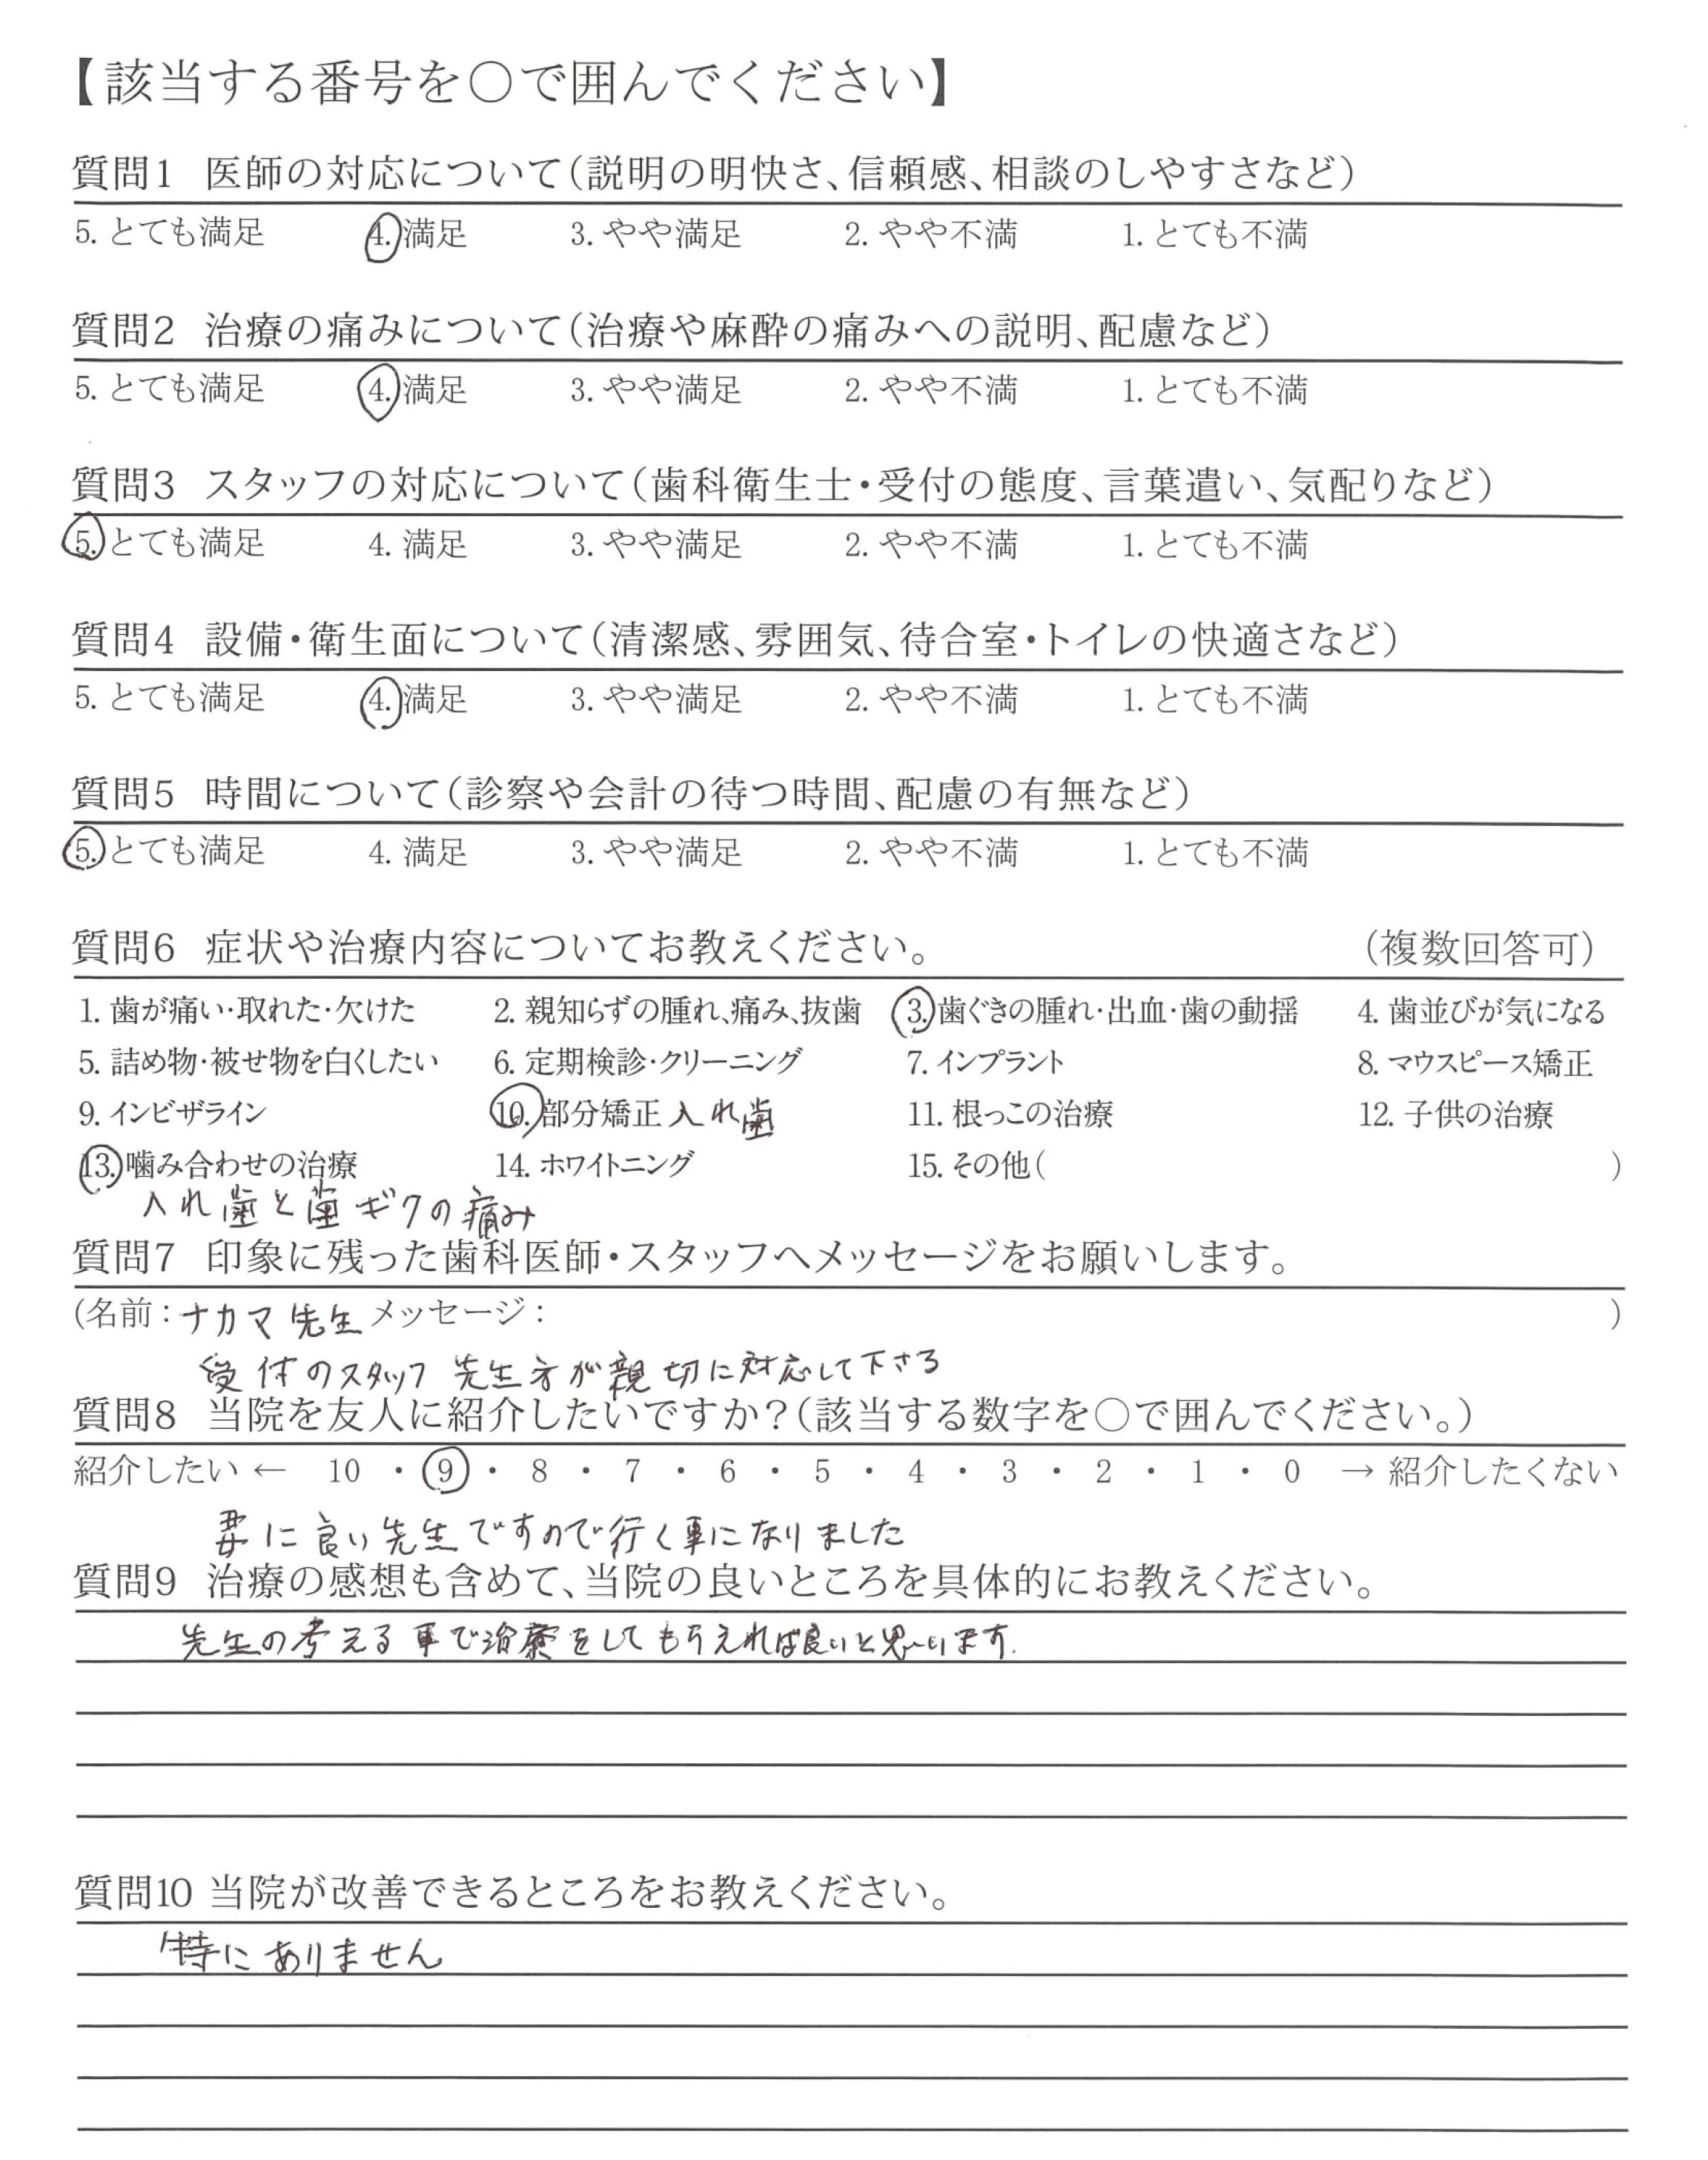 【該当する番号を○で囲んでください】
質問1 医師の対応について(説明の明快さ、信頼感、相談のしやすさなど)
5. とても満足 4. 満足 3. やや満足 2. やや不満 1. とても不満
質問2 治療の痛みについて(治療や麻酔の痛みへの説明、配慮など)
5. とても満足 4. 満足 3. やや満足 2. やや不満 1. とても不満
質問3 スタッフの対応について(歯科衛生士・受付の態度、言葉遣い、気配りなど)
5. とても満足 4. 満足 3. やや満足 2. やや不満 1. とても不満
質問4 設備・衛生面について(清潔感、雰囲気、待合室・トイレの快適さなど)
5. とても満足 4. 満足 3. やや満足 2. やや不満 1. とても不満
質問5 時間について(診察や会計の待つ時間、配慮の有無など)
5. とても満足 4. 満足 3. やや満足 2. やや不満 1. とても不満
質問6 症状や治療内容についてお教えください。 (複数回答可)
1. 歯が痛い・取れた・欠けた 2. 親知らずの腫れ、痛み、抜歯 3. 歯ぐきの腫れ・出血・歯の動揺 4. 歯並びが気になる
5. 詰め物・被せ物を白くしたい 6. 定期検診・クリーニング 7. インプラント 8. マウスピース矯正
9. インビザライン 10. 部分矯正 入れ歯 11. 根っこの治療 12. 子供の治療
13. 噛み合わせの治療 14. ホワイトニング 15. その他( )
入れ歯と歯ギクの痛み
質問7 印象に残った歯科医師・スタッフへメッセージをお願いします。
(名前:ナカマ先生 メッセージ: )
受付のスタッフ 先生方が親切に対応して下さる
質問8 当院を友人に紹介したいですか?(該当する数字を○で囲んでください。)
紹介したい ← 10 ・ 9 ・ 8 ・ 7 ・ 6 ・ 5 ・ 4 ・ 3 ・ 2 ・ 1 ・ 0 → 紹介したくない
妻に良い先生ですので行く事になりました
質問9 治療の感想も含めて、当院の良いところを具体的にお教えください。
先生の考える事で治療をしてもらえれば良いと思います.
質問10 当院が改善できるところをお教えください。
特にありません